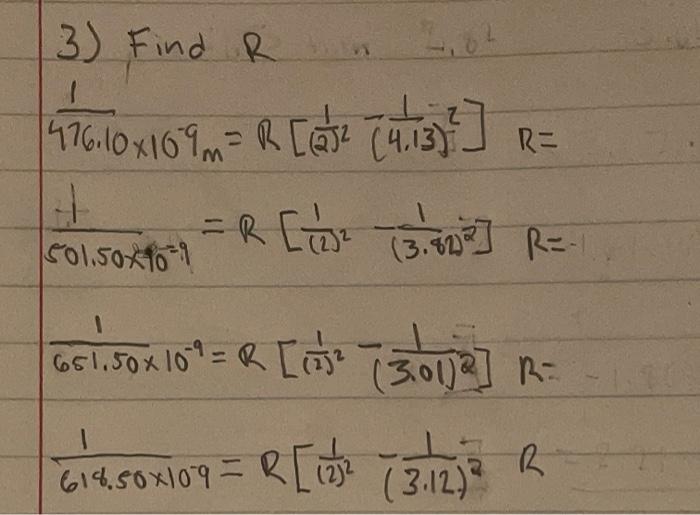 3) Find R
1/476.10x10^-9 m = R [1/(2)^2 - 1/(4.13)^2] R=
1/501.50x10^-9 = R [1/(2)^2 - 1/(3.82)^2] R=
1/651.50x10^-9 = R [1/(2)^2 - 1/(3.01)^2] R=
1/618.50x10^-9 = R [1/(2)^2 - 1/(3.12)^2 R